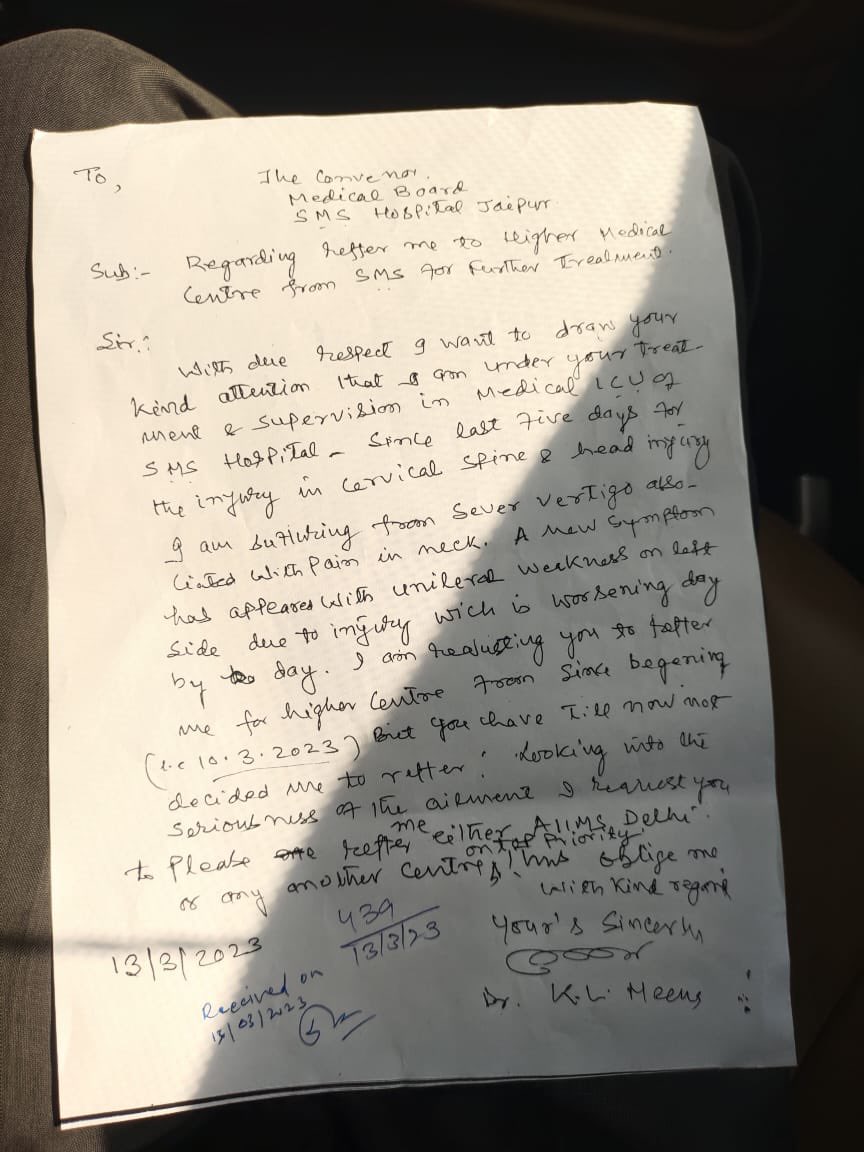 To,
The Convenor.
Medical Board
SMS Hospital Jaipur
Sub:- Regarding reffer me to Higher Medical
Centre from SMS for Further Treatment.
Sir,:
With due respect I want to draw your
kind attention that I am under your treat-
ment & supervision in Medical ICU of
SMS Hospital - Since last five days for
the injury in cervical spine & head injury
I am suffuring from Sever vertigo asso-
ciated with Pain in neck. A new symptom
has appeares with unileral weakness on left
side due to injury wich is worsening day
by day. I am requisting you to reffer
me for higher Centre from since begening
(i.e 10.3.2023) But you have Till now not
decided me to reffer. Looking into the
seriousness of the ailment I request you
to Please reffer me either AIIMS Delhi
or any another Centre on top Priority. Thus oblige me
with kind regard
13/3/2023
439
13/3/23
Your's Sincerly
Received on
13/03/2023
Dr. K.L. Meena